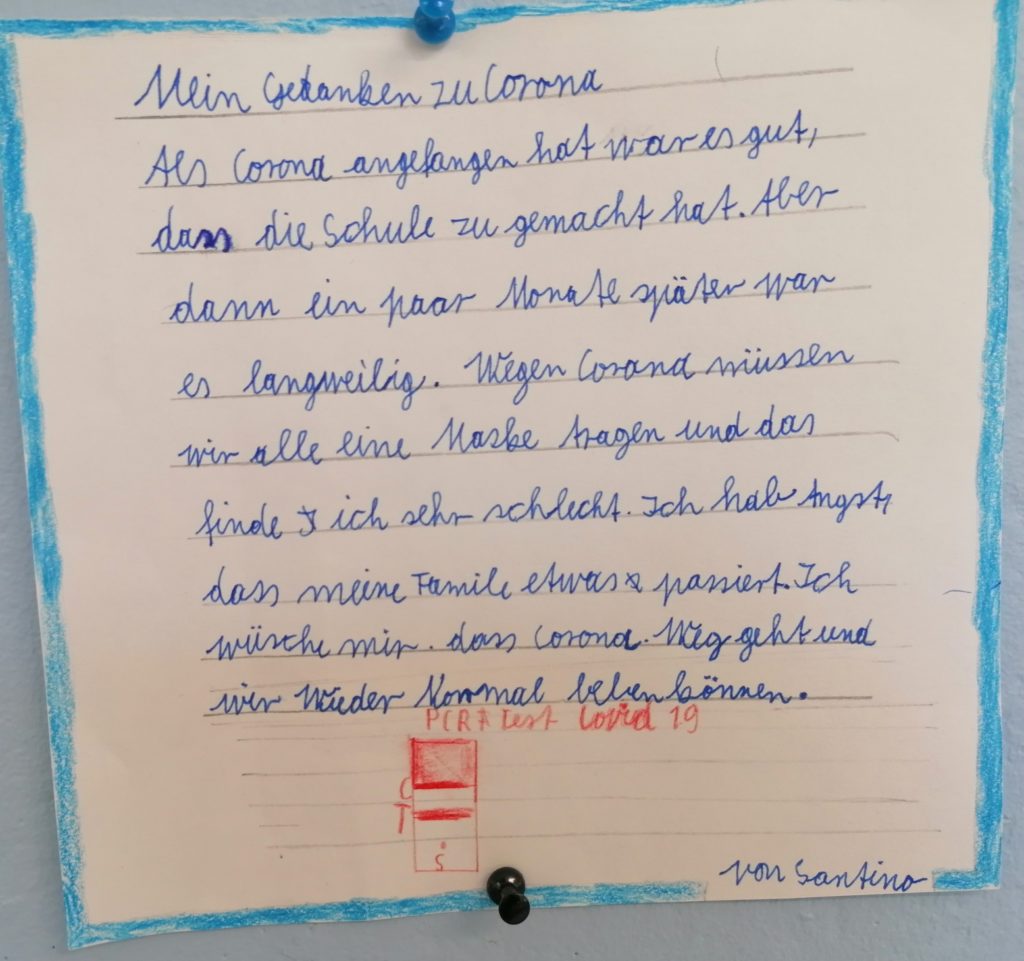 Mein Gedanken zu Corona
Als Corona angefangen hat war es gut,
dass die Schule zu gemacht hat. Aber
dann ein paar Monate später war
es langweilig. Wegen Corona müssen
wir alle eine Maske tragen und das
finde ich sehr schlecht. Ich hab Angst,
dass meine Famile etwas passiert. Ich
wüsche mir. dass Corona. Weg geht und
wir Wieder Normal leben können.
PCR Test Covid 19
C
T
S
von Santino